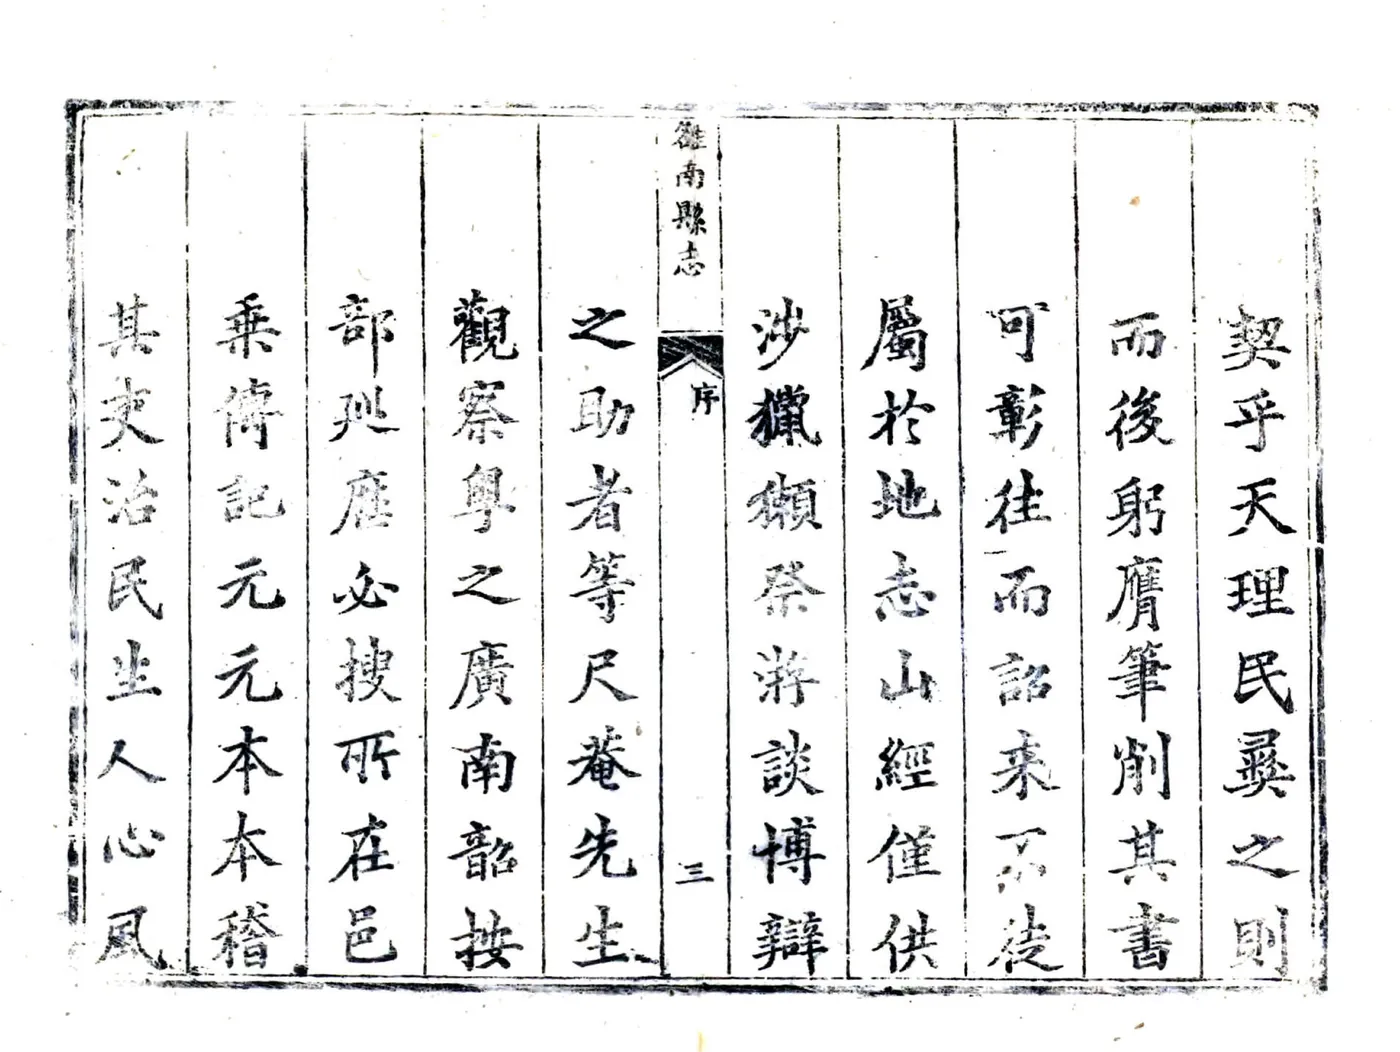 契乎天理民彛之則
而後躬膺筆削其書
可彰往而詔来不徒
屬於地志山經僅供
涉獵獺祭游談博辯
雒南縣志
序
三
之助者等尺菴先生
觀察粤之廣南韶按
部廵歷必搜所在邑
乗傳記元元本本稽
其吏治民生人心風